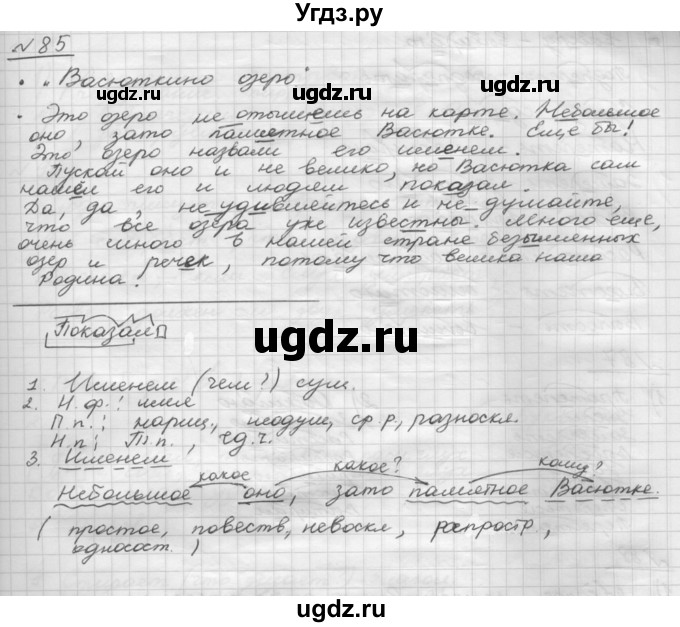 Угдз.ру
№85
• „Васюткино озеро"
• Это озеро не отыщешь на карте. Небольшое
оно, зато памятное Васютке. Еще бы!
Это озеро назвали его именем.
Пускай оно и не велико, но Васютка сам
нашёл его и людям показал.
Да, да, не удивляйтесь и не думайте,
что все озера уже известны. Много еще,
очень много в нашей стране безымянных
озер и речек, потому что велика наша
Родина!
Показал
1. Именем (чем?) сущ.
2. Н.ф.: имя
П.п.: нариц., неодуш, ср.р, разноскл.
Н.п: Т.п., ед.ч.
3. Именем
какое какое? кому?
Небольшое оно, зато памятное Васютке.
(простое, повеств, невоскл, распростр.,
односост.)
ugdz.ru
ugdz.ru
ugdz.ru
ugdz.ru
ugdz.ru
ugdz.ru
ugdz.ru
ugdz.ru
ugdz.ru
ugdz.ru